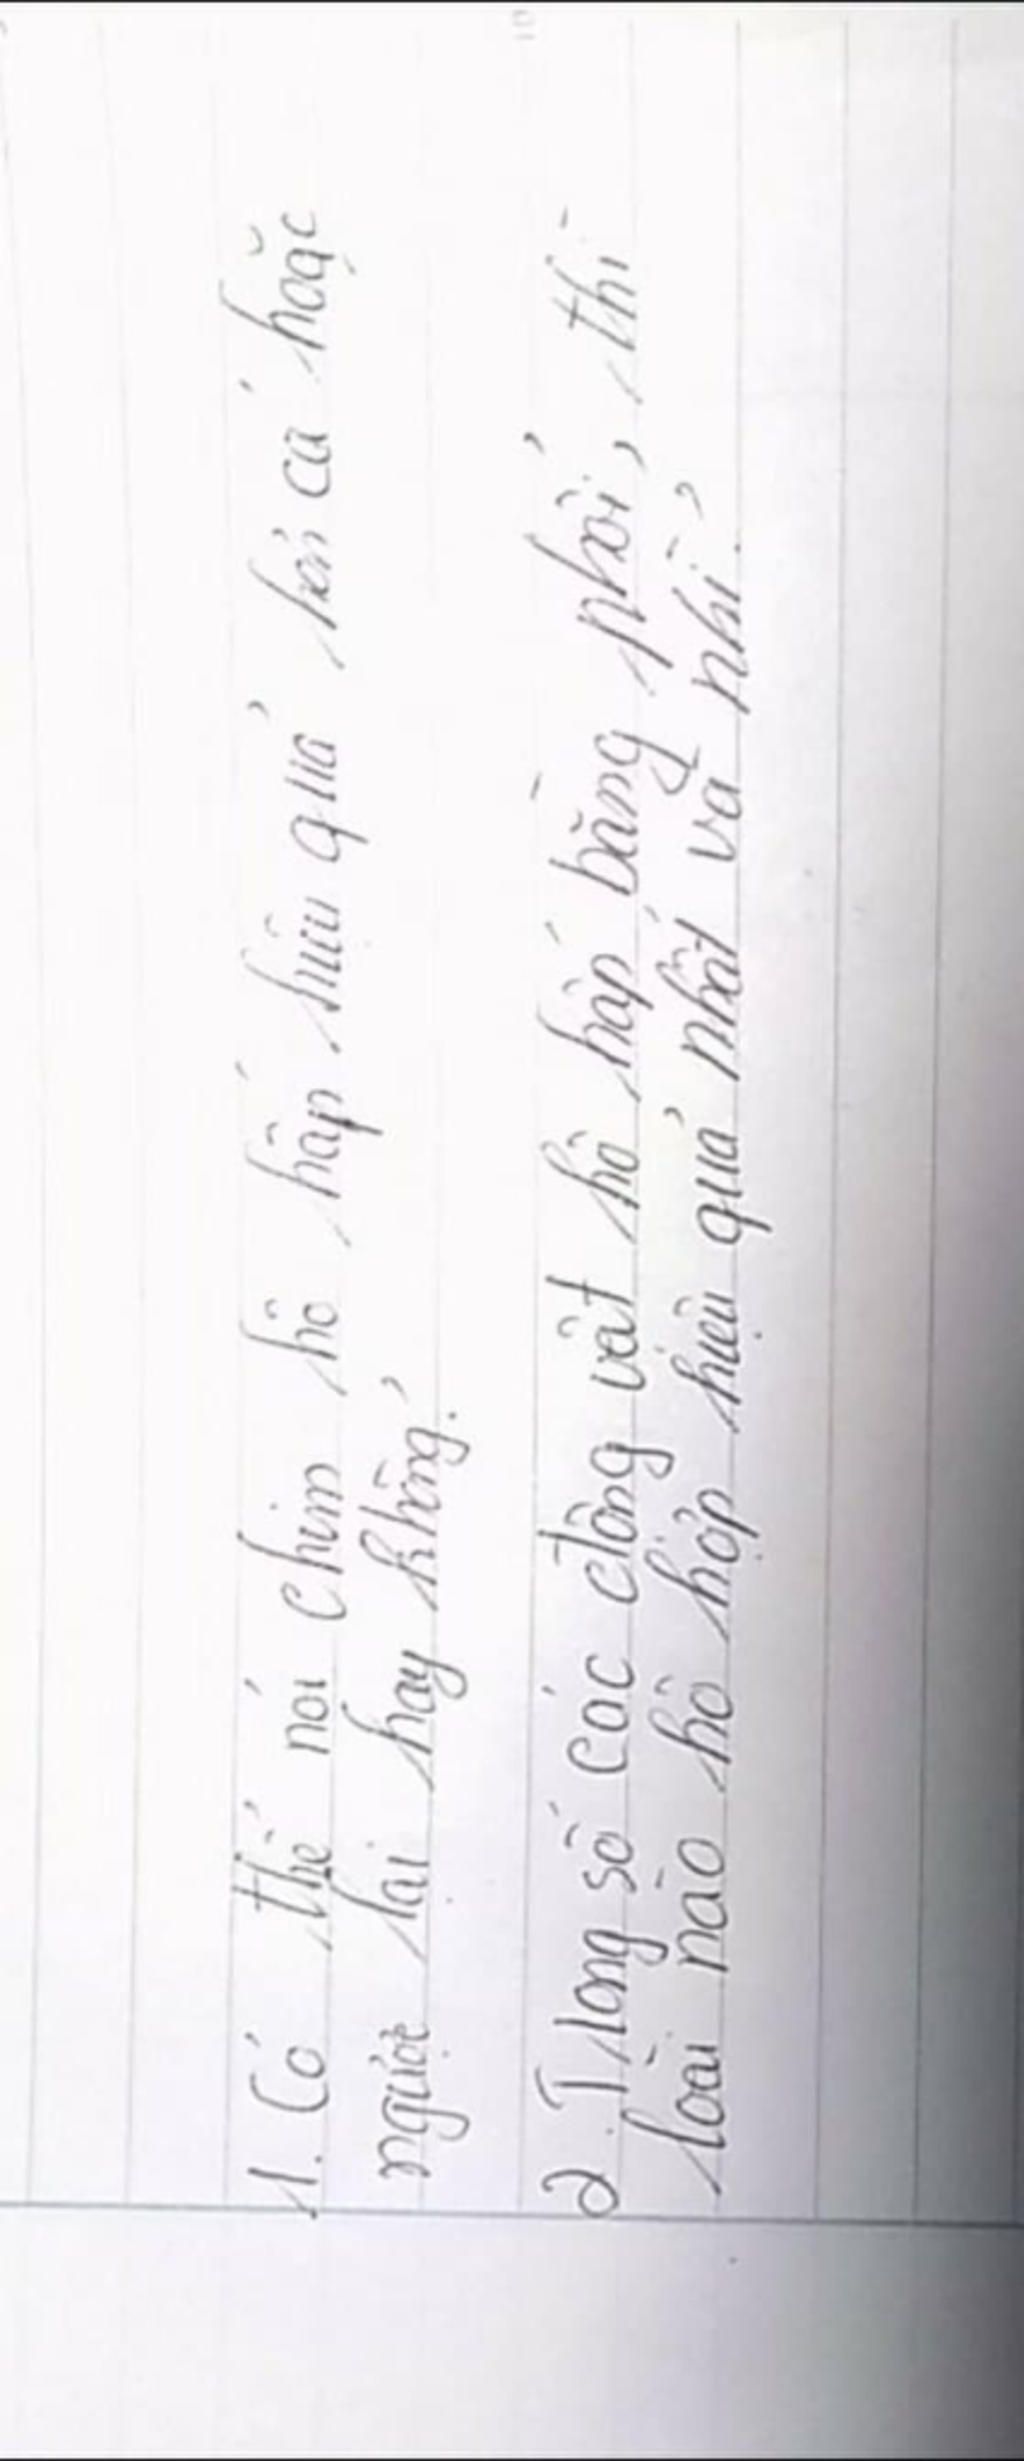 1. Có thể nói chim hô hấp hiệu quả hơn cá hoặc
ngược lại hay không?
2. Trong số các động vật hô hấp bằng phổi, thì
loài nào hô hấp hiệu quả nhất và nhì?